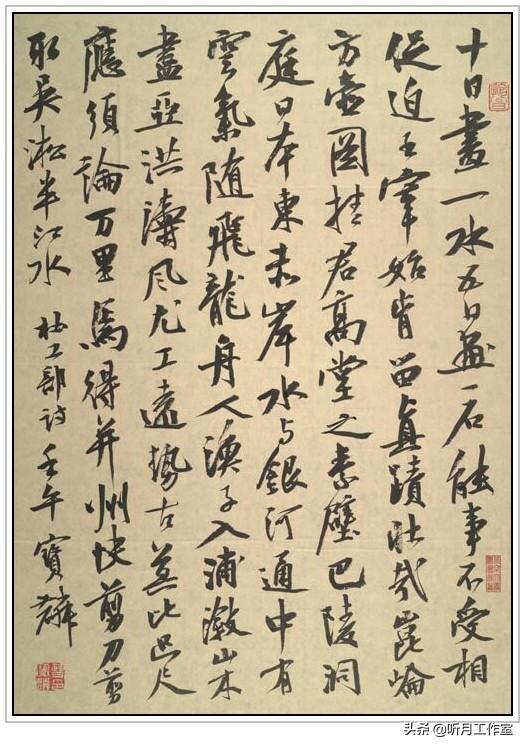 十日畫一水五日畫一石能事不受相
促迫王宰始肯留眞蹟壯哉崑崙
方壺圖挂君高堂之素壁巴陵洞
庭日本東赤岸水与銀河通中有
雲氣随飛龍舟人漁子入浦漵山木
盡亞洪濤風尤工遠勢古莫比咫尺
應須論万里焉得并州快剪刀剪
取吳淞半江水 杜工部詩 壬午寶麟
头条 @听月工作室